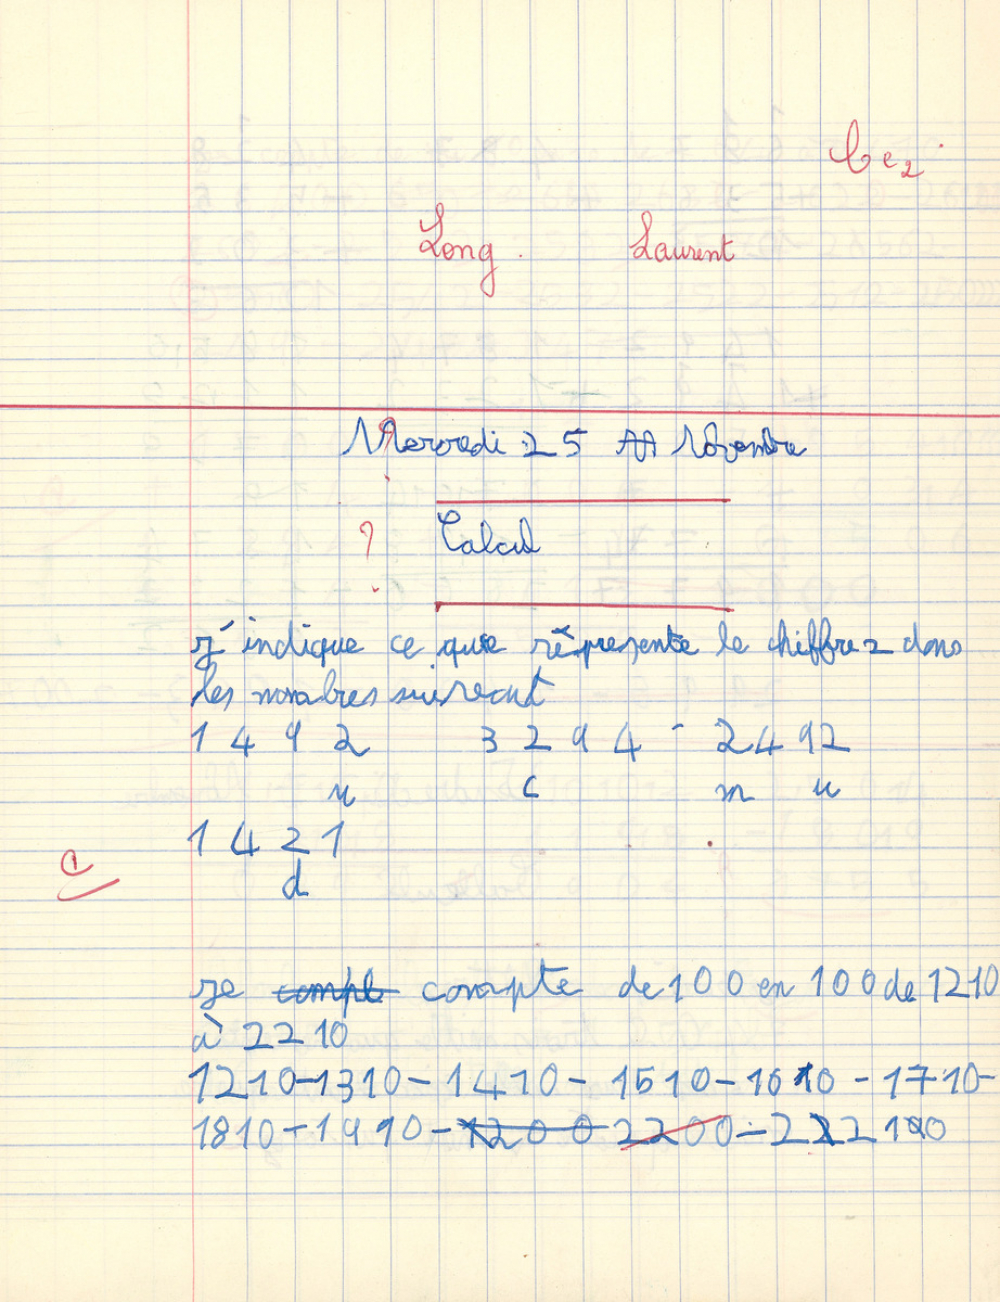 Ce2
Long Laurent
Mercredi 25 Novembre
?
? Calcul
j'indique ce que représente le chiffre 2 dans
les nombres suivant
1 4 9 2 3 2 9 4 - 2 4 9 2
u c m u
1 4 2 1
d
je compt compte de 100 en 100 de 1210
à 2210
1210-1310-1410-1510-1610-1710-
1810-1910-1200 2200-2210